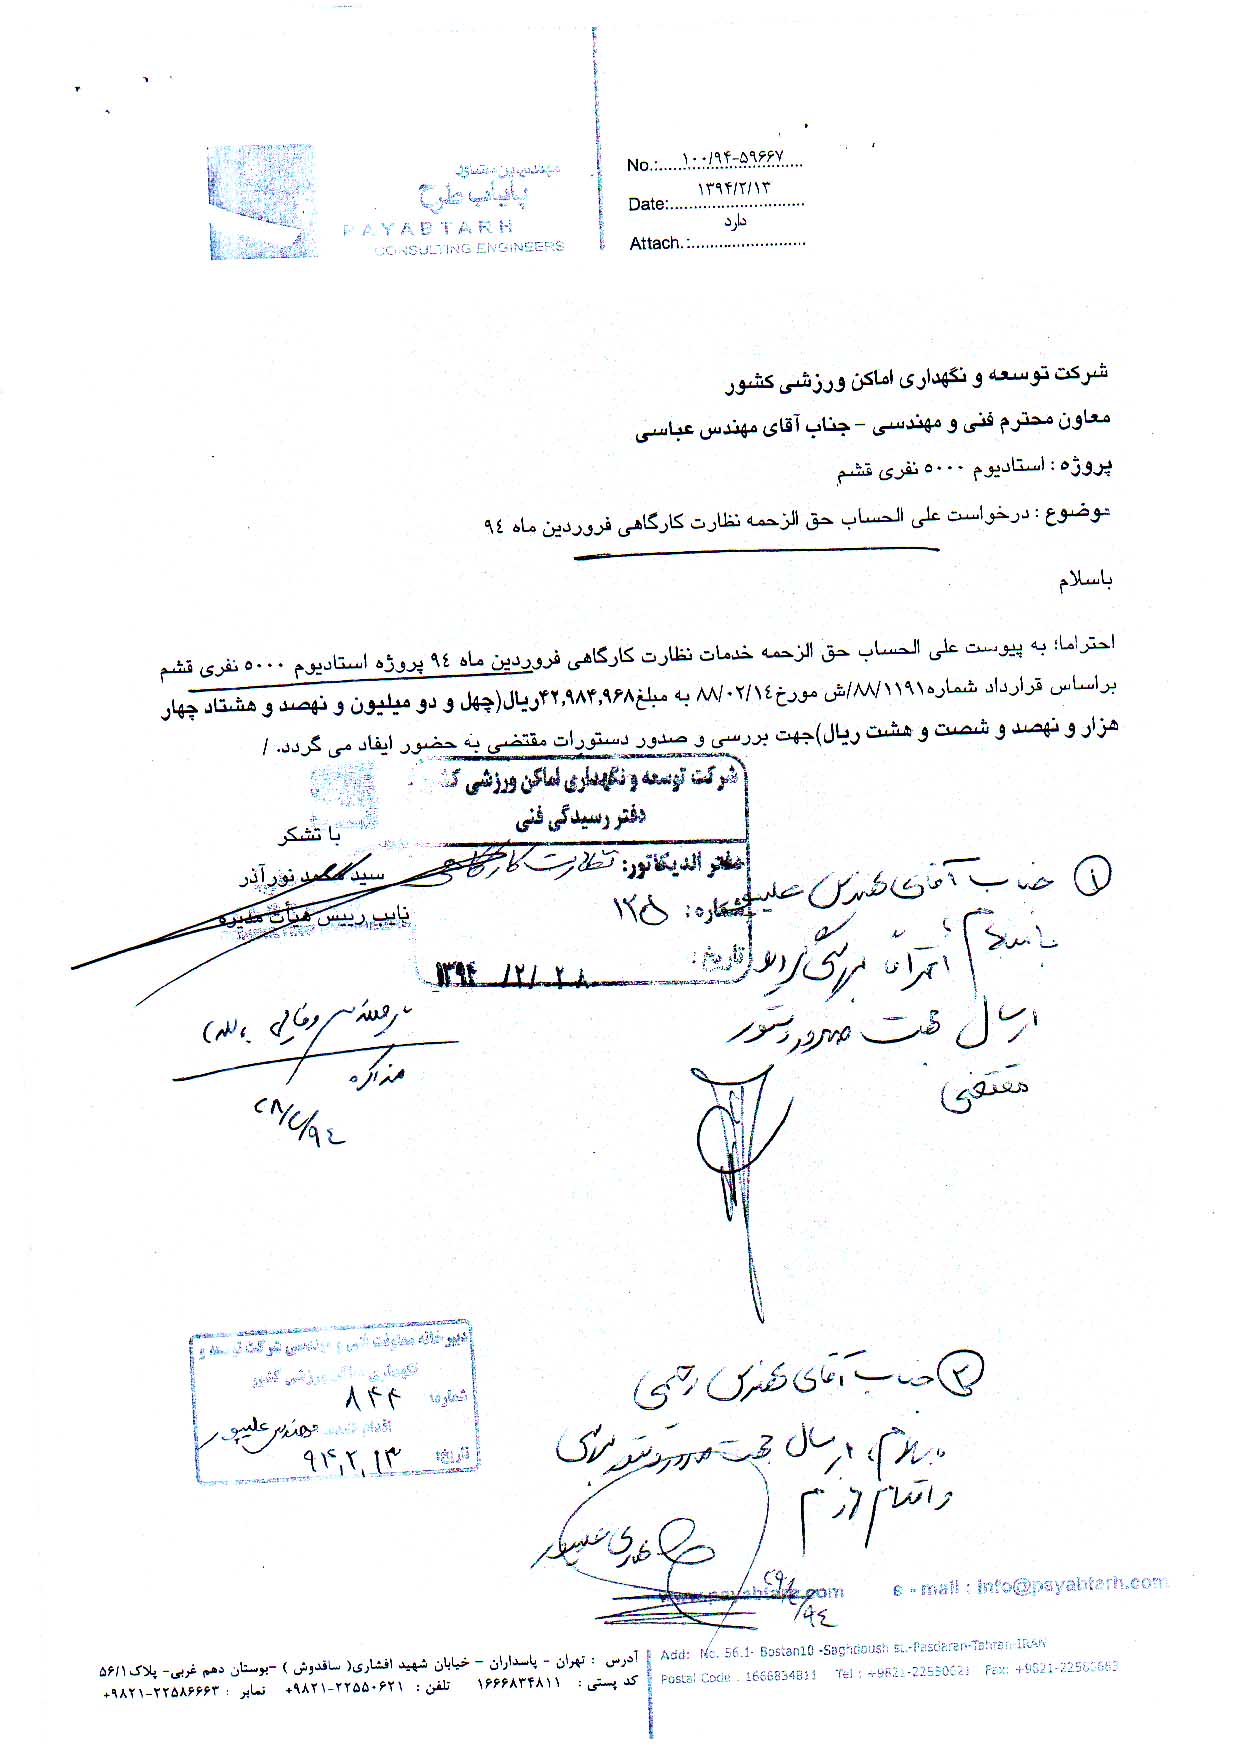 مهندسین مشاور
پایاب طرح
PAYABTARH
CONSULTING ENGINEERS
No.:.....۱۰۰/۹۴-۵۹۶۶۷
Date:.....۱۳۹۴/۲/۱۳
Attach.:.....دارد
شرکت توسعه و نگهداری اماکن ورزشی کشور
معاون محترم فنی و مهندسی - جناب آقای مهندس عباسی
پروژه : استادیوم ۵۰۰۰ نفری قشم
موضوع : درخواست علی الحساب حق الزحمه نظارت کارگاهی فروردین ماه ٩٤
باسلام
احتراما؛ به پیوست علی الحساب حق الزحمه خدمات نظارت کارگاهی فروردین ماه ٩٤ پروژه استادیوم ۵۰۰۰ نفری قشم
براساس قرارداد شماره ۸۸/۱۱۹۱/ش مورخ ۸۸/۰۲/۱٤ به مبلغ ۴۲,۹۸۴,۹۶۸ریال(چهل و دو میلیون و نهصد و هشتاد چهار
هزار و نهصد و شصت و هشت ریال)جهت بررسی و صدور دستورات مقتضی به حضور ایفاد می گردد. /
شرکت توسعه و نگهداری اماکن ورزشی
دفتر رسیدگی فنی
دفتر اندیکاتور: نظارت کارگاهی
شماره:
تاریخ: ۱۳۹۴ /۲/ ۲۸
با تشکر
سید محمد نورآذر
نایب رییس هیأت مدیره
۱ جناب آقای مهندس علیپور
با سلام احتراماً
ارسال جهت صدور دستور
مقتضی
مذاکره
۲۸/۲/۹٤
دبیرخانه معاونت فنی و مهندسی شرکت توسعه و
نگهداری اماکن ورزشی کشور
شماره: ۸۴۴
اقدام کننده: مهندس علیپور
تاریخ: ۹۴,۲,۱۳
۲ جناب آقای مهندس رستمی
با سلام، ارسال جهت بررسی
و اقدام لازم
www.payabtarh.com e - mail : info@payabtarh.com
آدرس : تهران - پاسداران - خیابان شهید افشاری( ساقدوش ) -بوستان دهم غربی- پلاک ۵۶/۱
کد پستی : ۱۶۶۶۸۳۴۸۱۱ تلفن : ۲۲۵۵۰۶۲۱-۹۸۲۱+ نمابر : ۲۲۵۸۶۶۶۳-۹۸۲۱+
Add: No. 56.1- Bostan10 -Saghdoush st.-Pasdaran-Tehran-IRAN
Postal Code : 1666834811 Tel : +9821-22550621 Fax: +9821-22586663